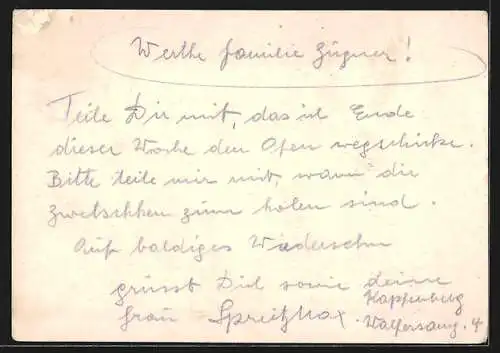 Werthe familie Zügner!
Teile Dir mit, das ich Ende
dieser Woche den Ofen wegschicke.
Bitte teile mir mit, wann die
Zwetschken zum holen sind.
Auf baldiges Wiedersehn
grüsst Dich sowie deine
frau Spreitz Max.
Kapfenberg